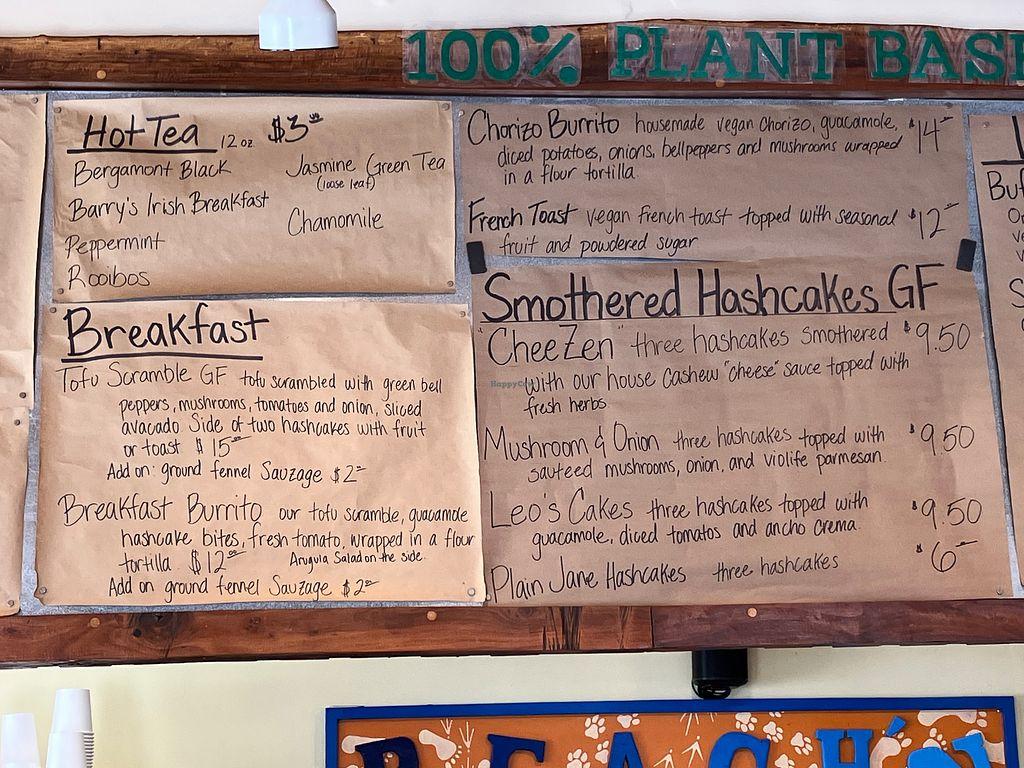 100% PLANT BASE
Hot Tea 12 oz $3.00
Bergamont Black
Jasmine Green Tea
(loose leaf)
Barry's Irish Breakfast
Chamomile
Peppermint
Rooibos
Breakfast
Tofu Scramble GF tofu scrambled with green bell
peppers, mushrooms, tomatoes and onion, sliced
avacado Side of two hashcakes with fruit
or toast $15
Add on: ground fennel Sauzage $2
Breakfast Burrito our tofu scramble, guacamole
hashcake bites, fresh tomato, wrapped in a flour
tortilla $12.00 Arugula Salad on the side.
Add on ground fennel Sauzage $2
Chorizo Burrito housemade vegan chorizo, guacamole, $14
diced potatoes, onions, bellpeppers and mushrooms wrapped
in a flour tortilla
French Toast vegan french toast topped with seasonal $12
fruit and powdered sugar
Smothered Hashcakes GF
"CheeZen" three hashcakes smothered $9.50
with our house cashew "cheese" sauce topped with
fresh herbs
Mushroom & Onion three hashcakes topped with $9.50
sauteed mushrooms, onion, and violife parmesan.
Leo's Cakes three hashcakes topped with $9.50
guacamole, diced tomatos and ancho crema.
Plain Jane Hashcakes three hashcakes $6
HappyCow
BEACH'N